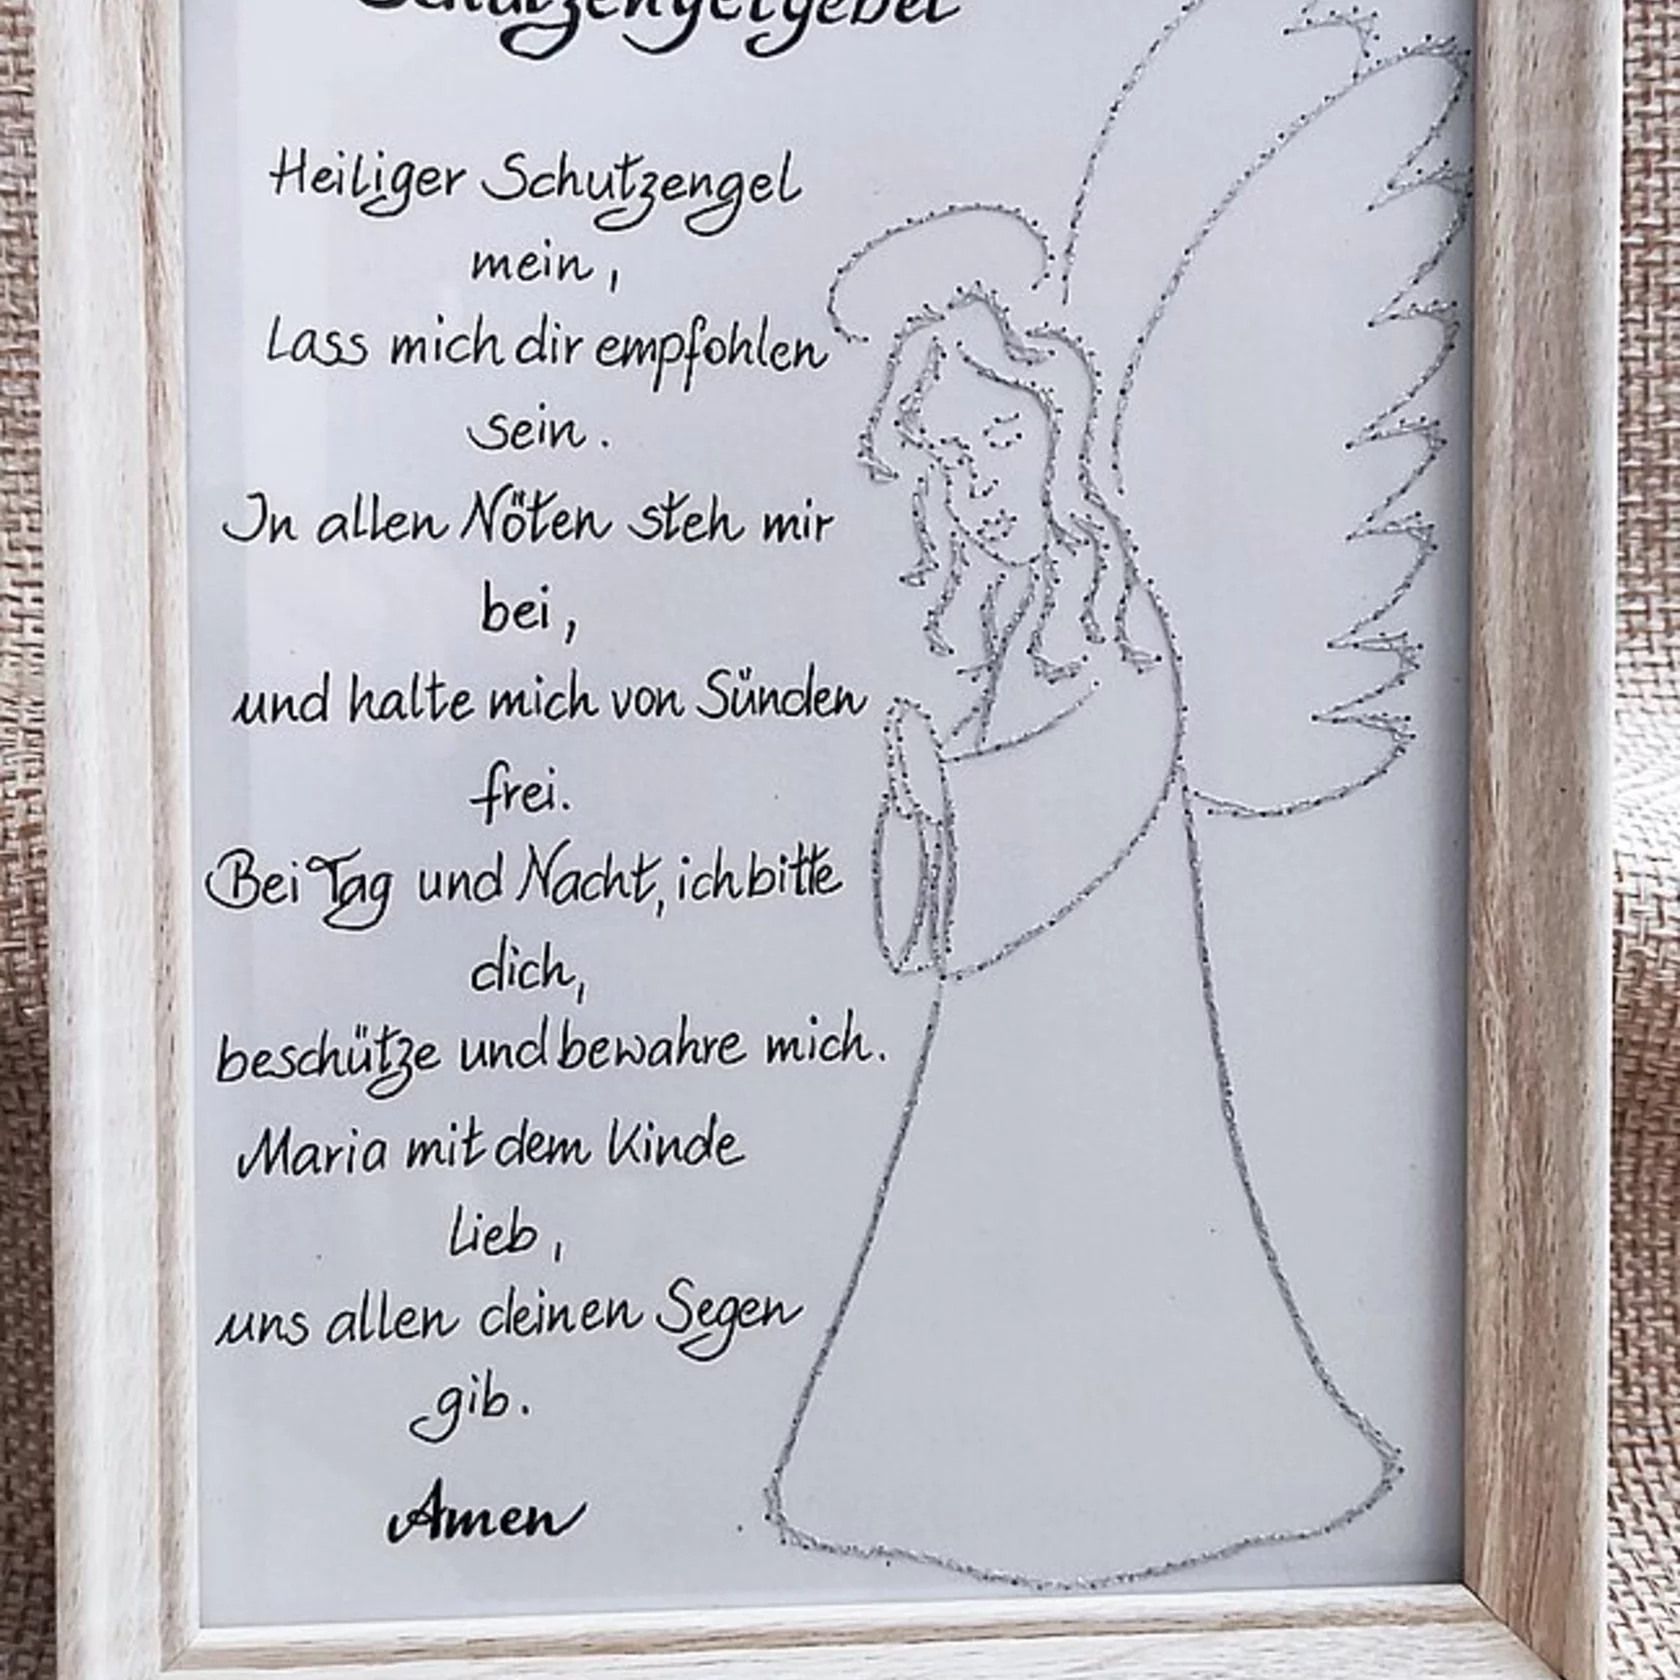 Schutzengelgebet
Heiliger Schutzengel
mein,
Lass mich dir empfohlen
sein.
In allen Nöten steh mir
bei,
und halte mich von Sünden
frei.
Bei Tag und Nacht, ich bitte
dich,
beschütze und bewahre mich.
Maria mit dem Kinde
lieb,
uns allen deinen Segen
gib.
Amen